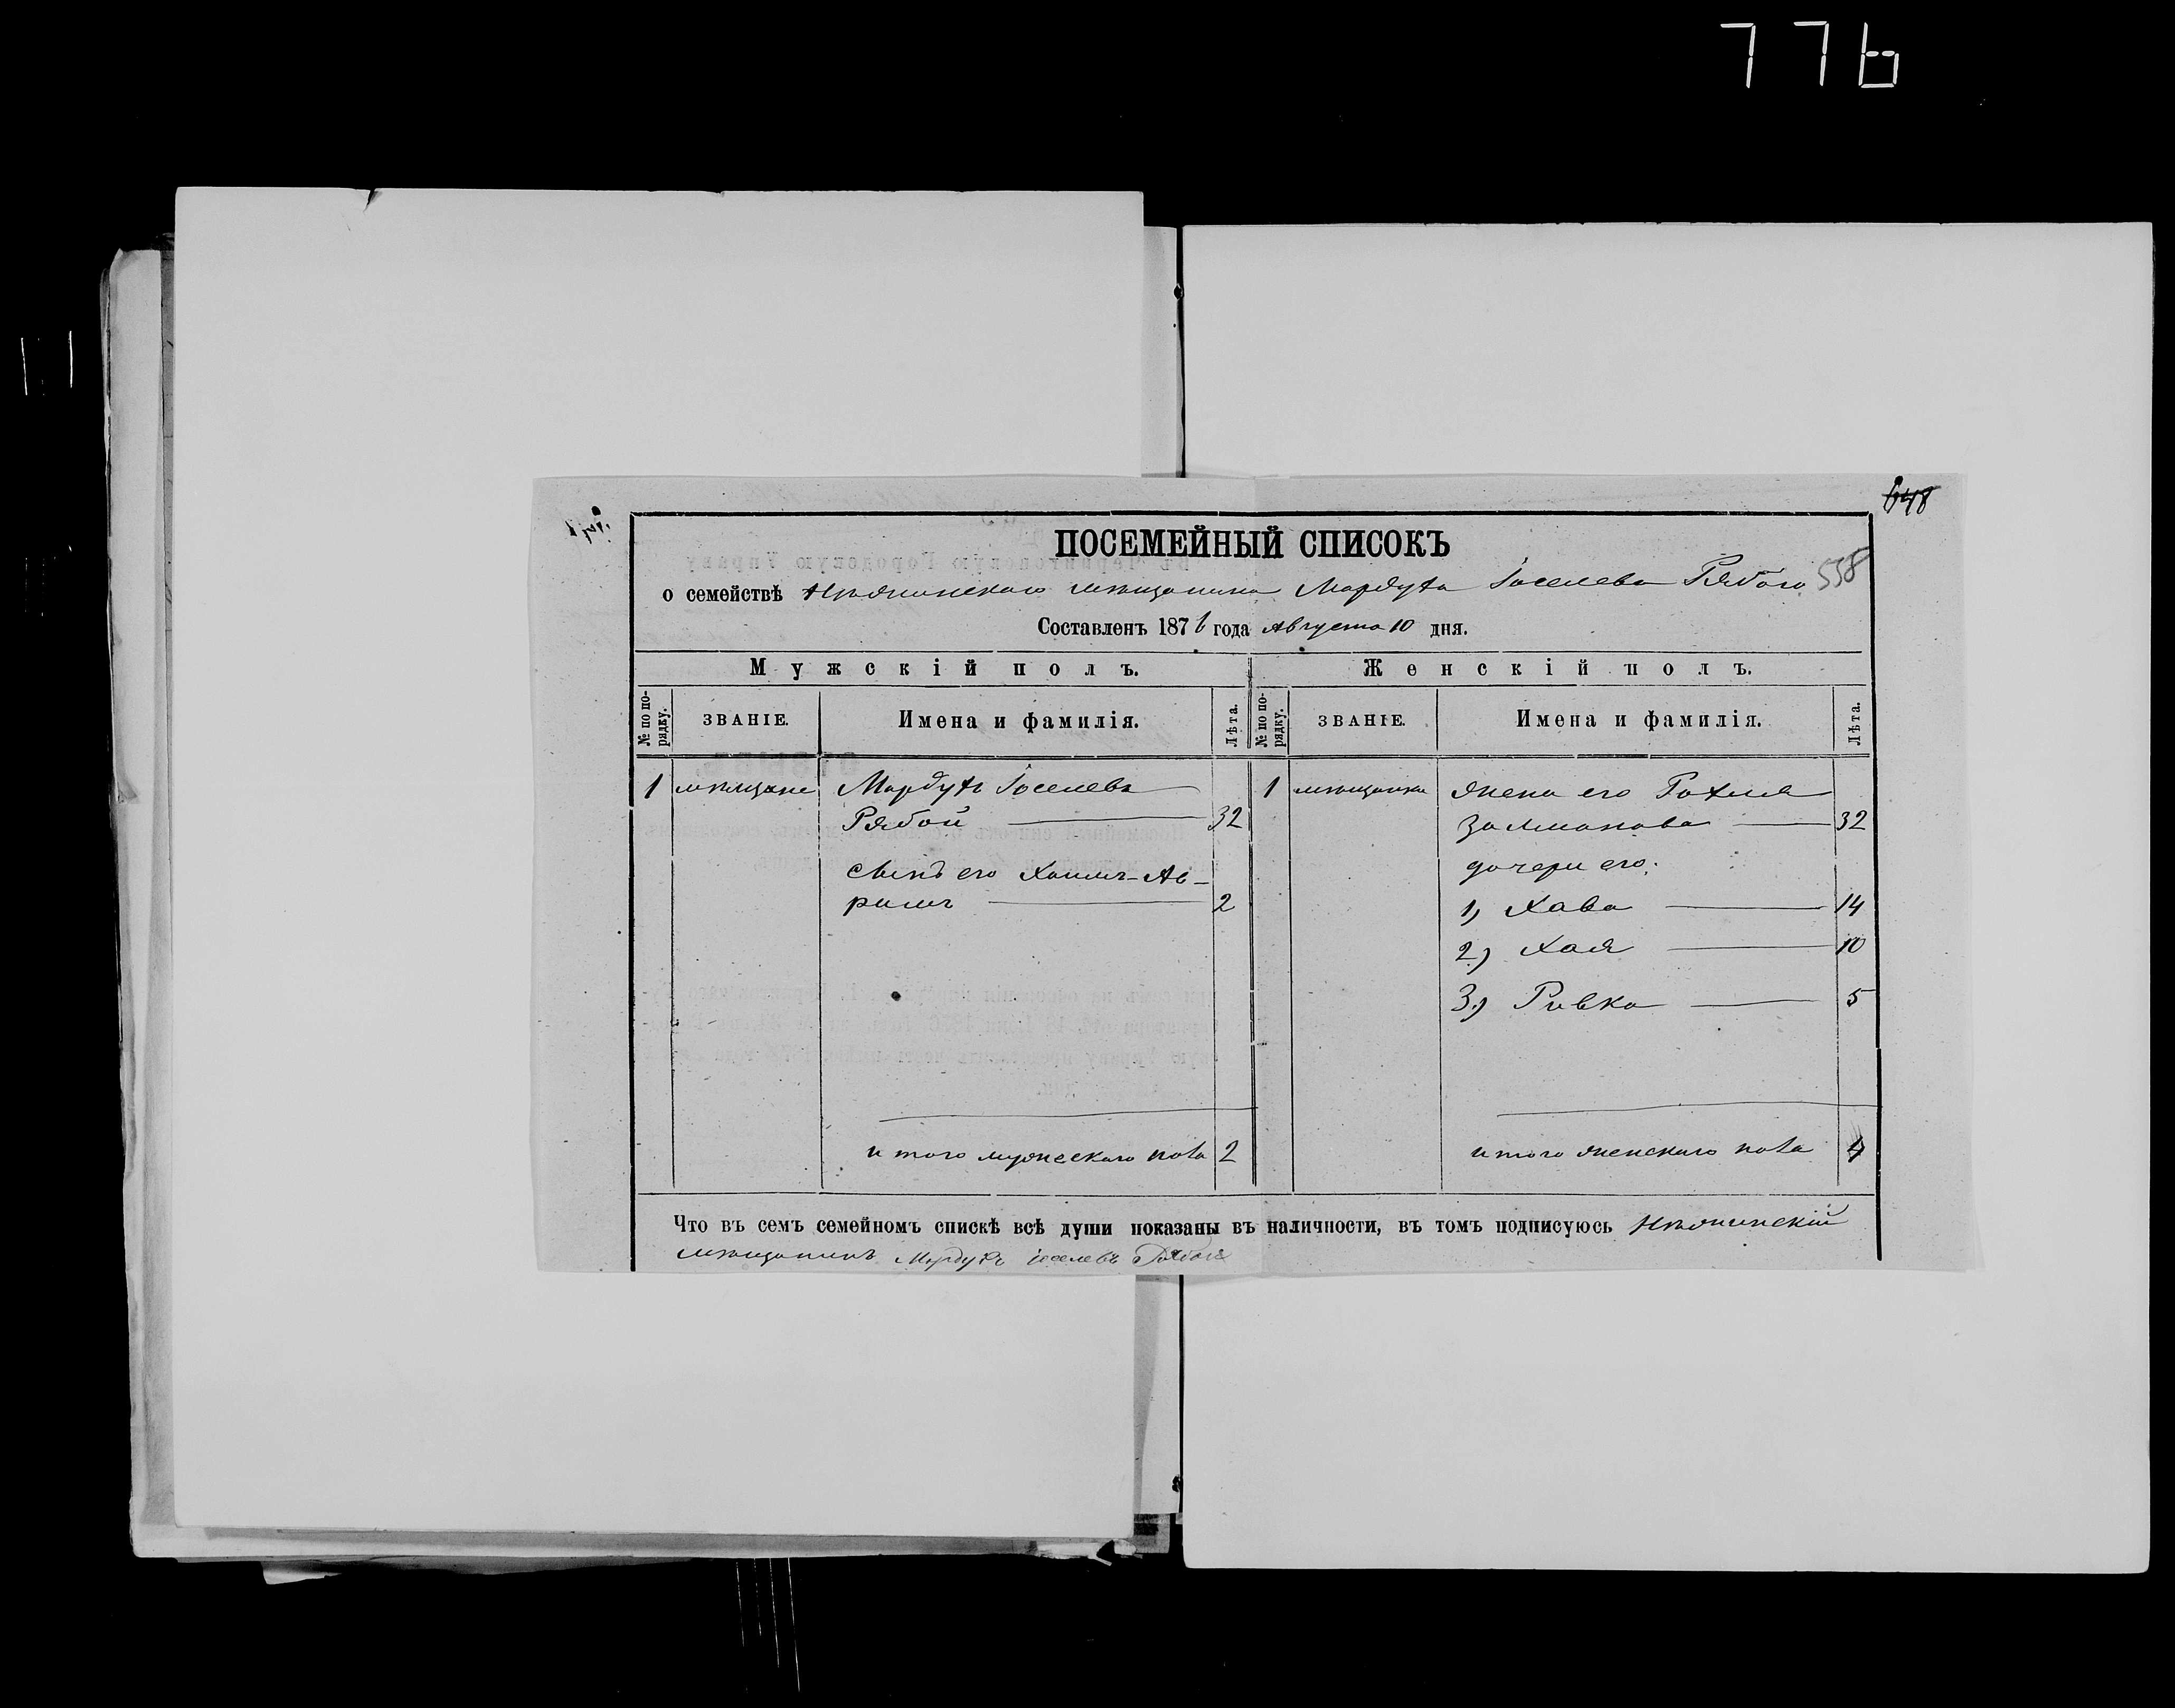 776
648
ПОСЕМЕЙНЫЙ СПИСОКЪ
о семействѣ Нѣжинскаго мѣщанина Мордуха Іоселева Рябого 558
Составленъ 1876 года Августа 10 дня.
Мужскій полъ. Женскій полъ.
№ по порядку. ЗВАНІЕ. Имена и фамилія. Лѣта. № по порядку. ЗВАНІЕ. Имена и фамилія. Лѣта.
1 мѣщане Мордухъ Іоселевъ 1 мѣщанка жена его Рохля
Рябой 32 Залманова 32
сынъ его Хаимъ-Ав- дочери его:
рамъ 2 1) Хава 14
2) Хая 10
3) Ривка 5
итого мужескаго пола 2 итого женскаго пола 4
Что въ семъ семейномъ спискѣ всѣ души показаны въ наличности, въ томъ подписуюсь Нѣжинскій
мѣщанинъ Мордухъ Іоселевъ Рябой